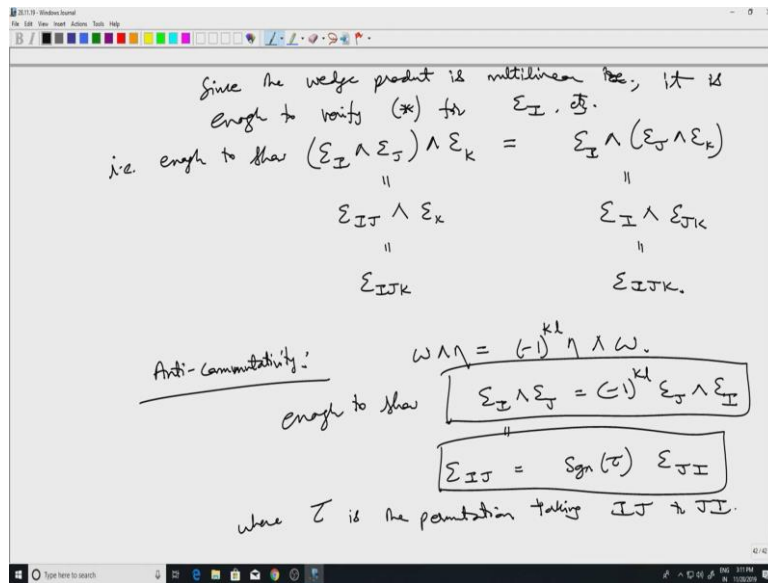 28.11.19 - Windows Journal
File Edit View Insert Actions Tools Help
Since the wedge product is multilinear, it is
enogh to verify (*) for Σ_I.
i.e. enogh to show (Σ_I ∧ Σ_J) ∧ Σ_K = Σ_I ∧ (Σ_J ∧ Σ_K)
" "
Σ_IJ ∧ Σ_K Σ_I ∧ Σ_JK
" "
Σ_IJK Σ_IJK.
Anti-commutativity: ω∧η = (-1)^kl η ∧ ω.
enogh to show Σ_I ∧ Σ_J = (-1)^kl Σ_J ∧ Σ_I
"
Σ_IJ = Sgn(τ) Σ_JI
where τ is the permutation taking IJ to JI.
42/42
Type here to search
ENG 3:11 PM
IN 11/28/2019